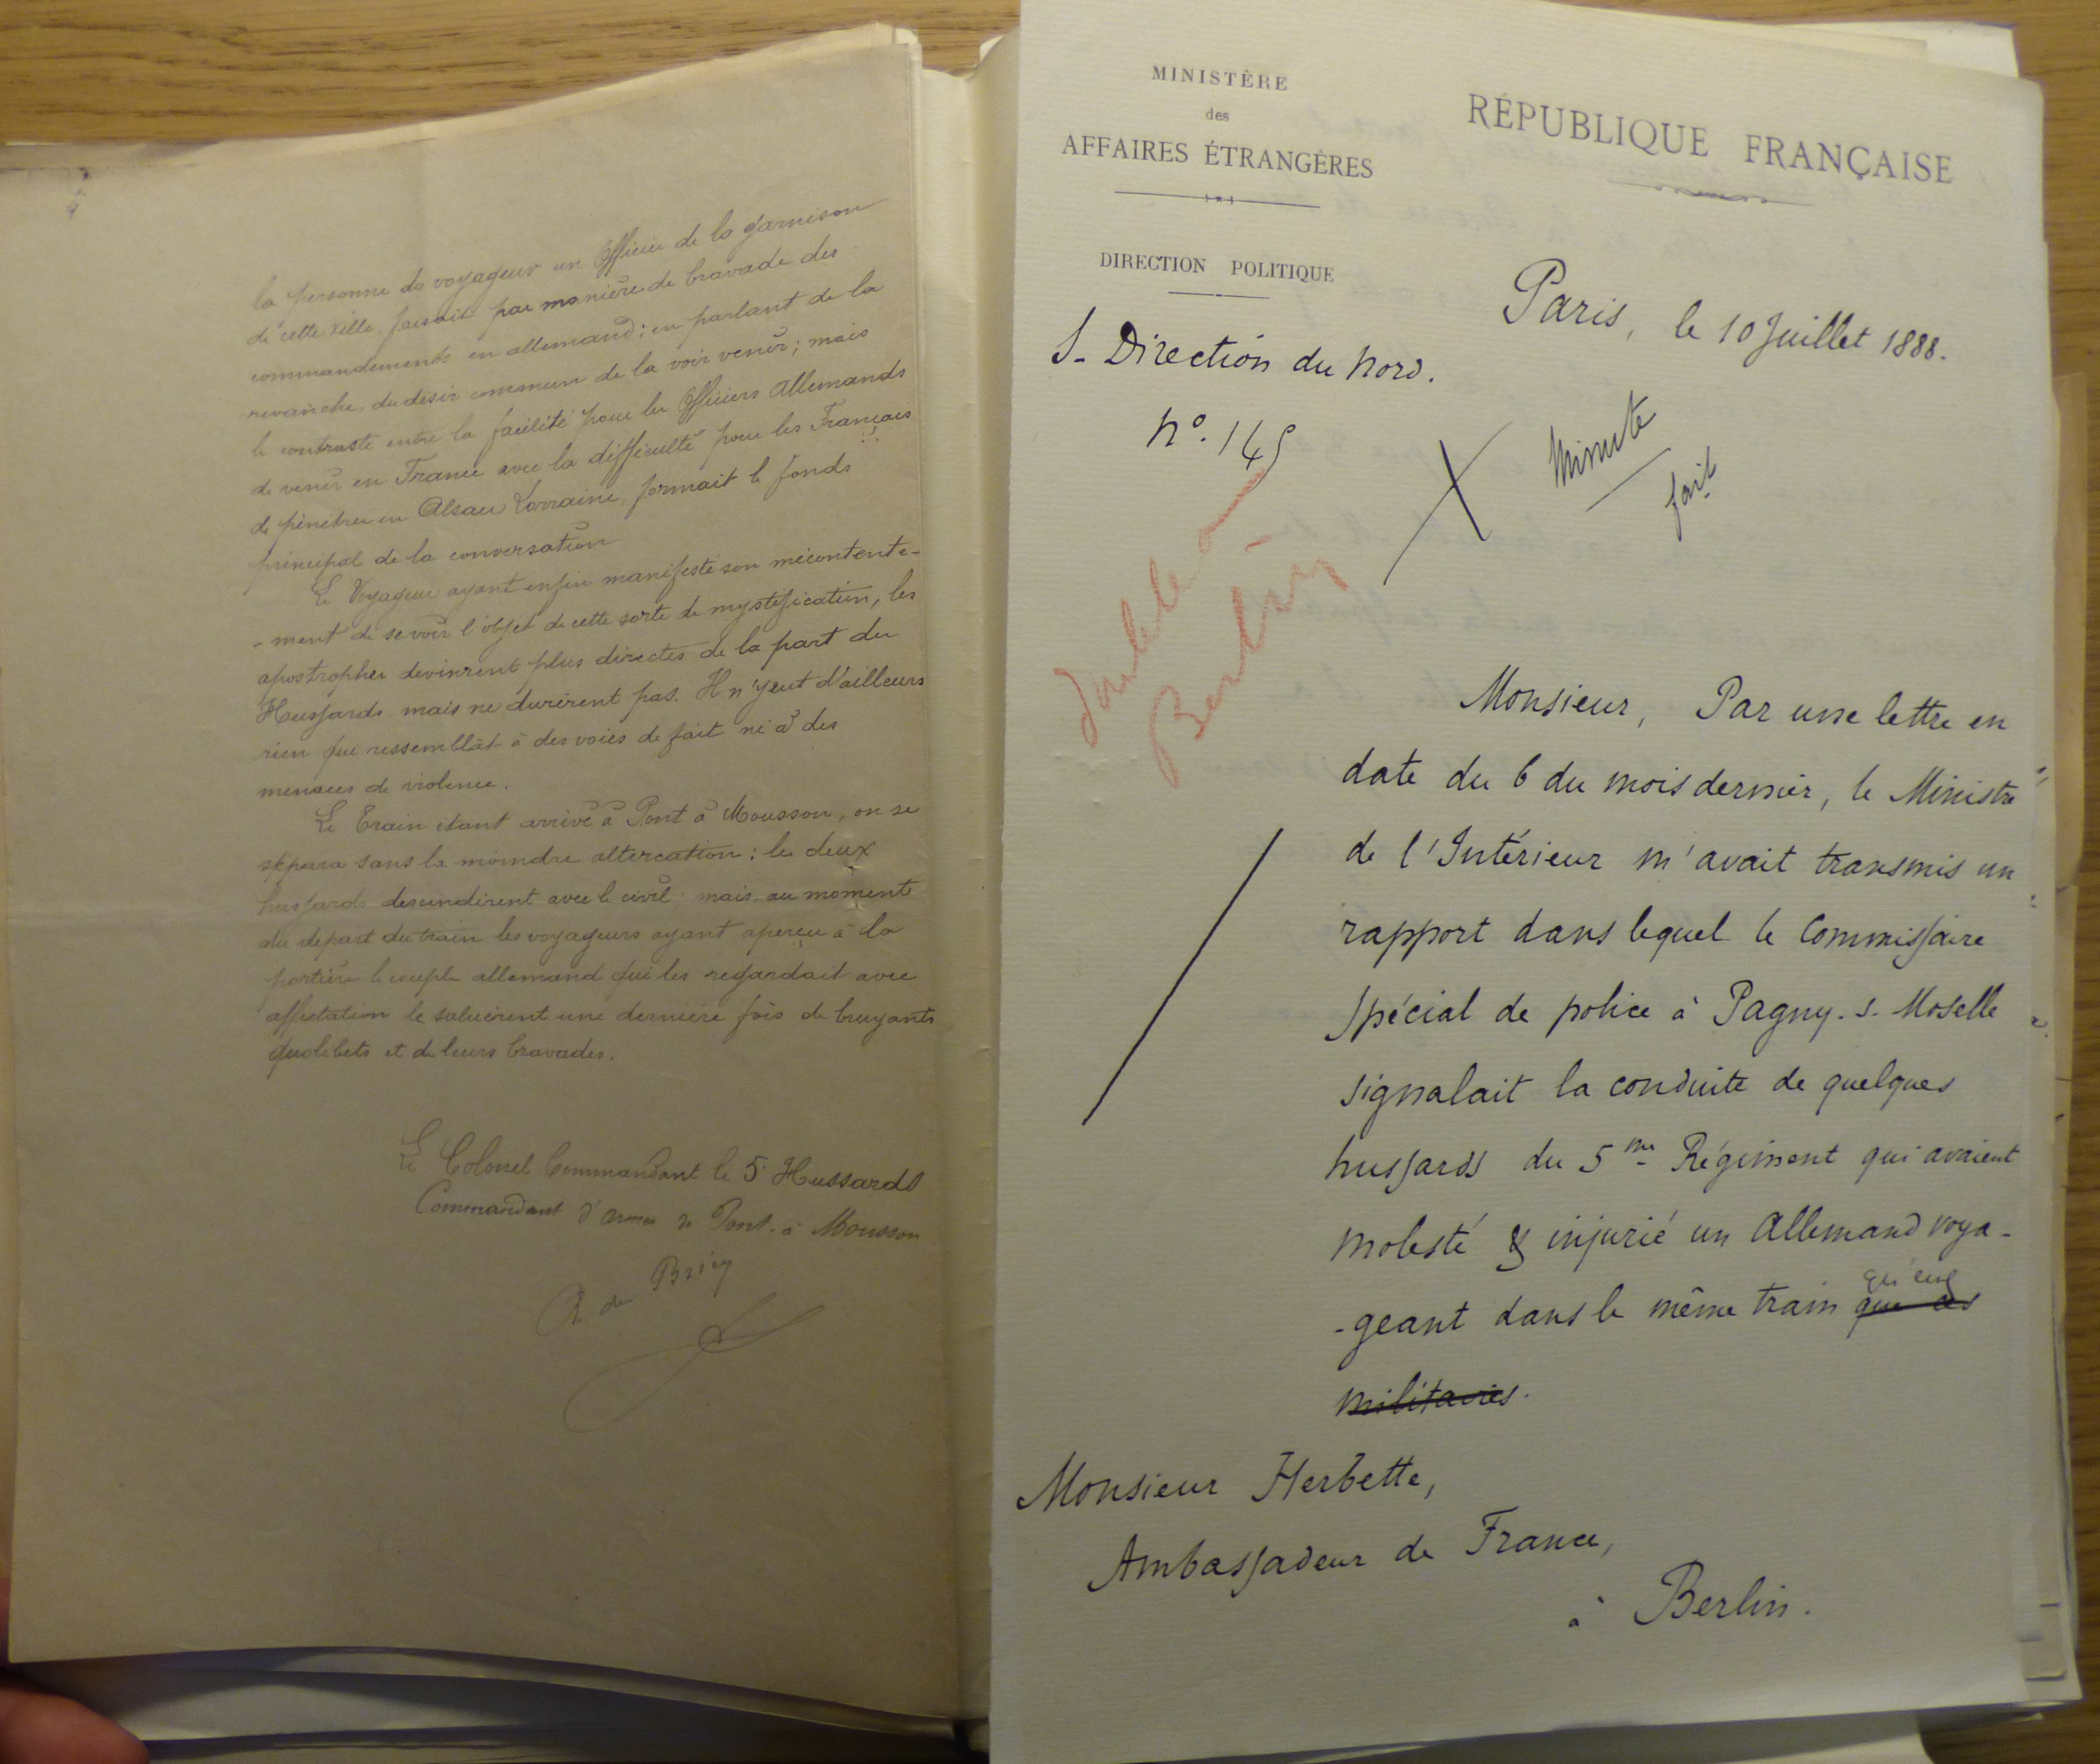 la personne du voyageur un Officier de la garnison
de cette ville, faisait par manière de bravade des
commandements en allemand; en parlant de la
revanche, du désir commun de la voir venir; mais
le contraste entre la facilité pour les Officiers Allemands
de venir en France avec la difficulté pour les Français
de pénétrer en Alsace Lorraine, formait le fonds
principal de la conversation
Le Voyageur ayant enfin manifesté son mécontente-
-ment de se voir l'objet de cette sorte de mystification, les
apostrophes devinrent plus directes de la part du
Hussards mais ne durèrent pas. Il n'y eut d'ailleurs
rien qui ressemblât à des voies de fait ni à des
menaces de violence.
Le Train étant arrivé à Pont à Mousson, on se
sépara sans la moindre altercation: les deux
hussards descendirent avec le civil; mais, au moment
du départ du train les voyageurs ayant aperçu à la
portière le couple allemand qui les regardait avec
affectation le saluèrent une dernière fois de bruyants
quolibets et de leurs bravades.
Le Colonel Commandant le 5e Hussards
Commandant d'armes de Pont-à-Mousson
de Briey
MINISTÈRE
des
AFFAIRES ÉTRANGÈRES
DIRECTION POLITIQUE
S- Direction du Nord.
No. 145
RÉPUBLIQUE FRANÇAISE
Paris, le 10 Juillet 1888.
Minute
fait
double à
Berlin
Monsieur, Par une lettre en
date du 6 du mois dernier, le Ministre
de l'Intérieur m'avait transmis un
rapport dans lequel le Commissaire
Spécial de police à Pagny-s-Moselle
signalait la conduite de quelques
hussards du 5me Régiment qui avaient
molesté & injurié un Allemand voya-
-geant dans le même train que ces qu'eux
militaires.
Monsieur Herbette,
Ambassadeur de France,
à Berlin.